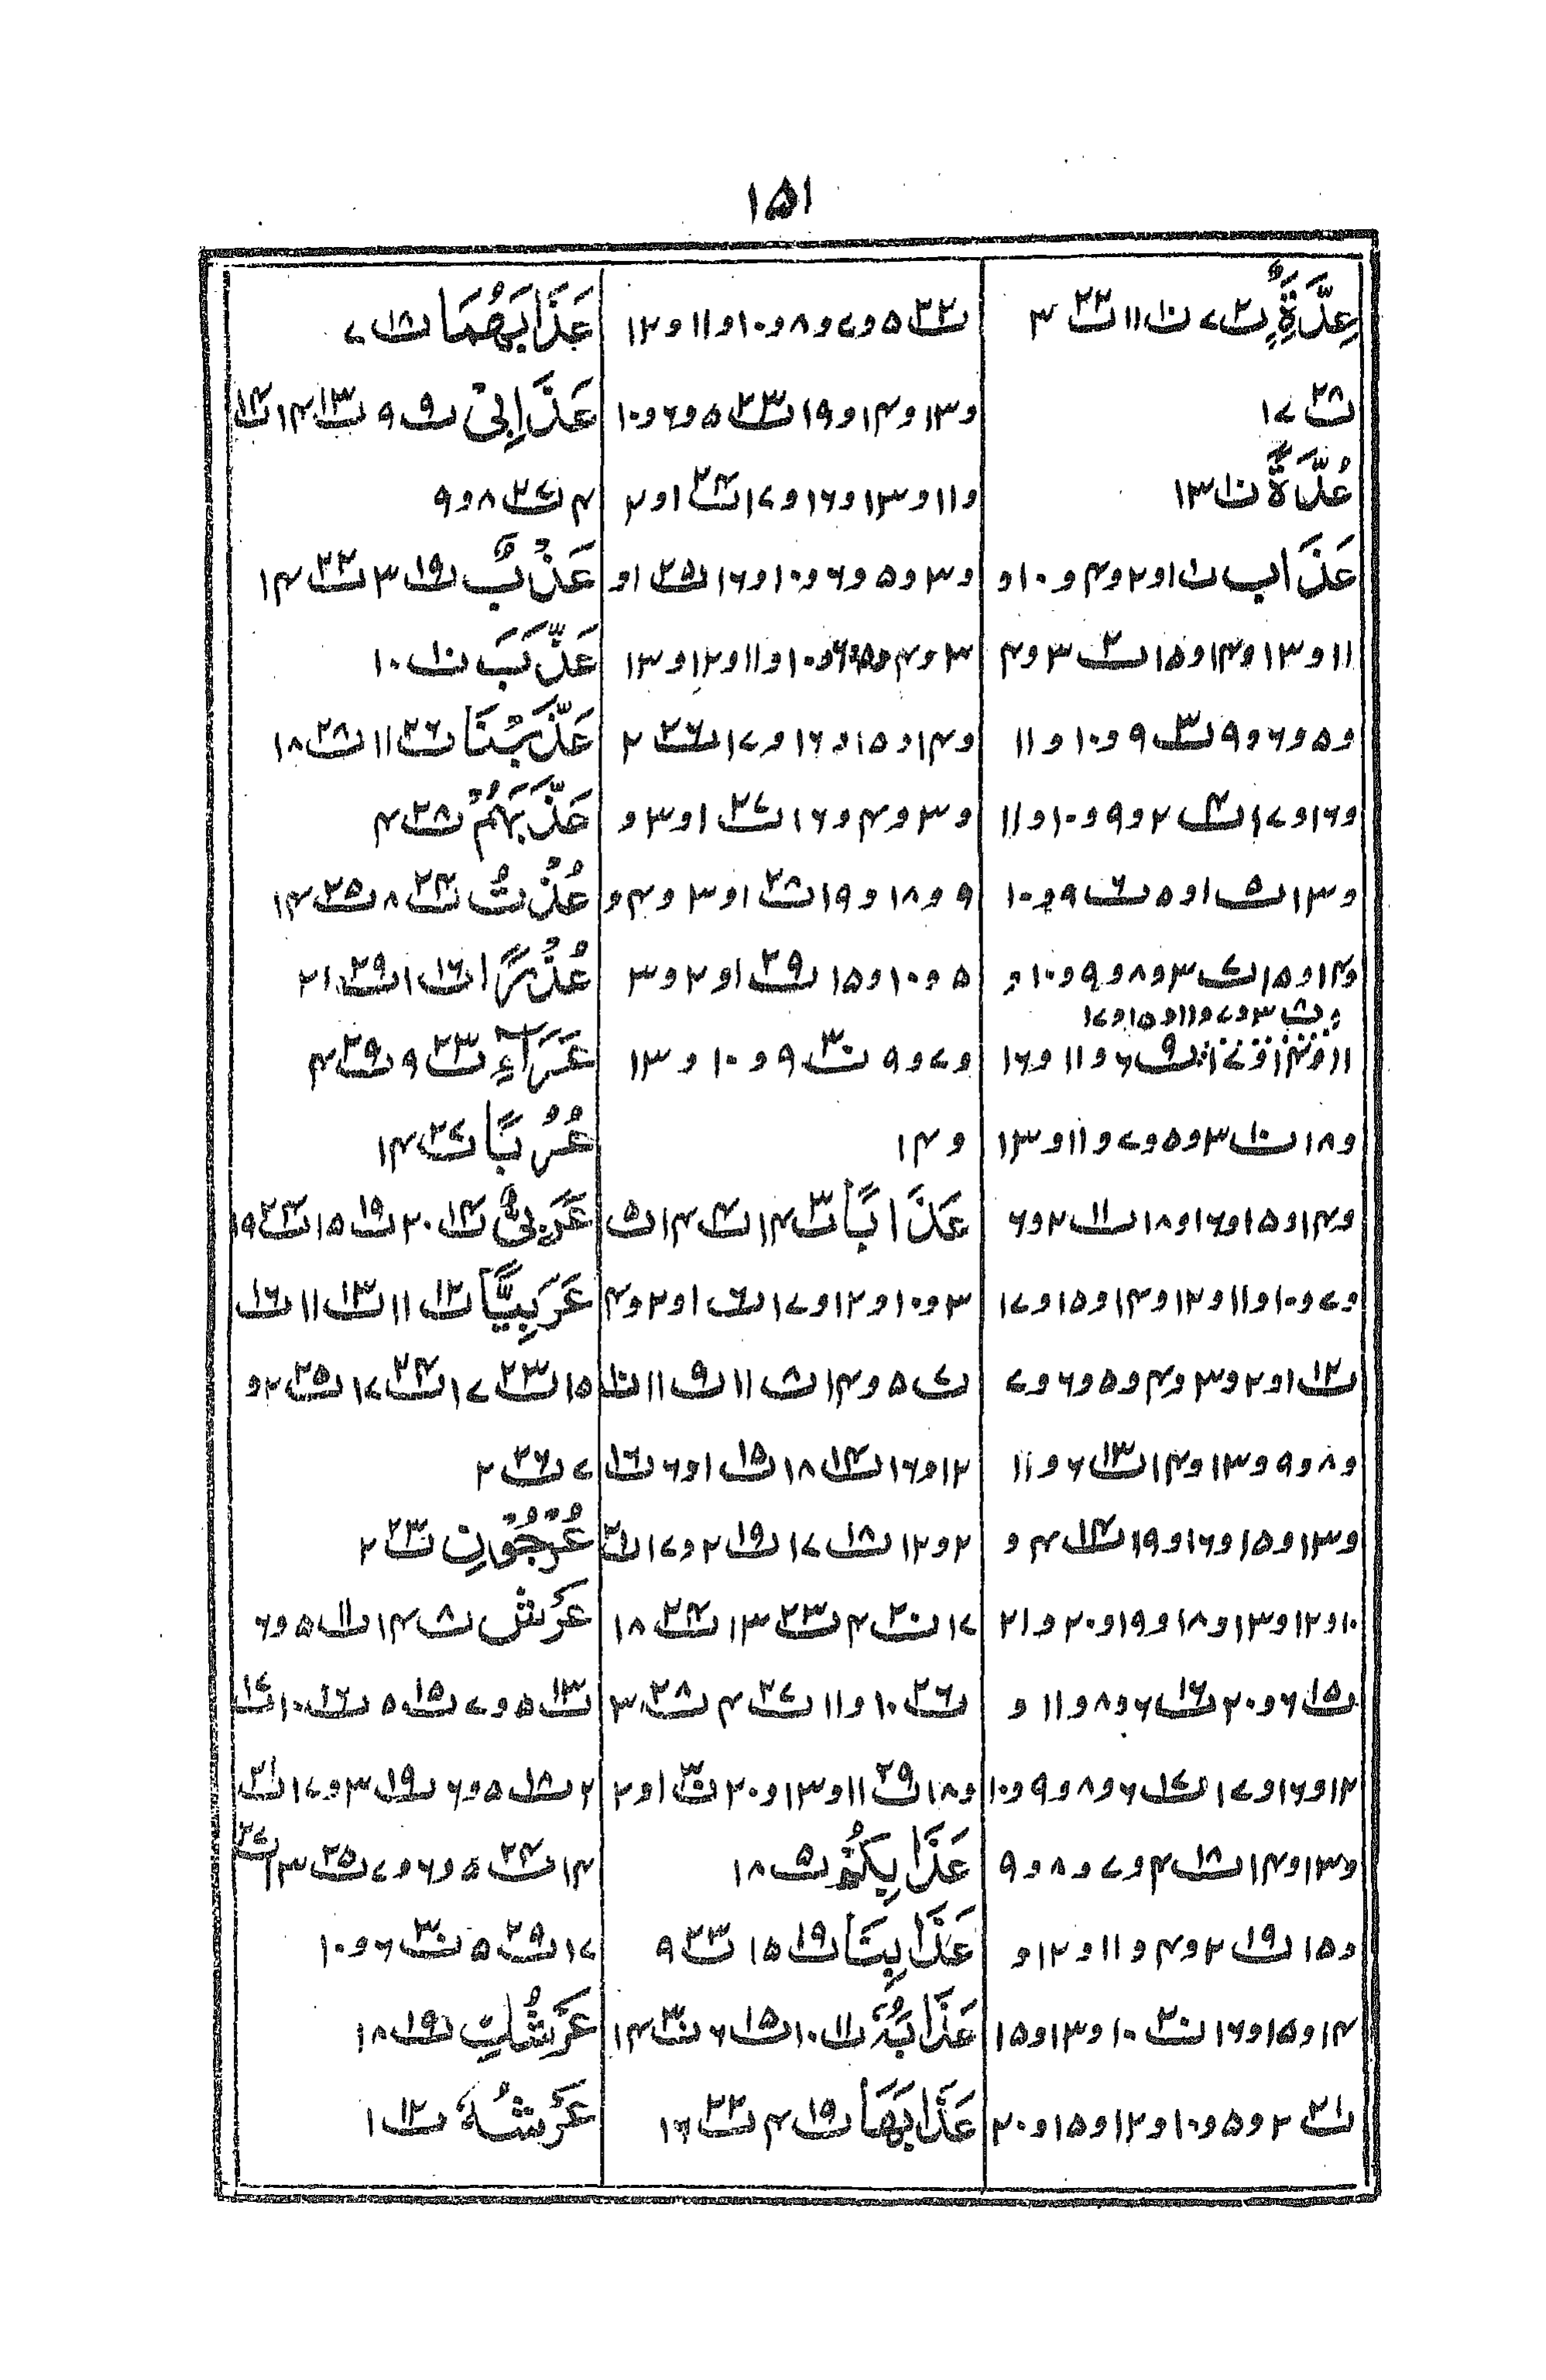 ۱۵۱
عِدَّةٍَُ پ۲ ۷ پ۱۰ ۱۱ پ۲۲ ۳
پ۲۸ ۱۷
عُدَّةً پ۱۰ ۱۳
عَذَاب پ۱ ۱و۲و۴و۱۰و
۱۱و۱۳و۱۴و۱۵ پ۲ ۳و۴
و۵و۶و۹ پ۳ ۹و۱۰و۱۱
و۱۶و۱۷ پ۴ ۲و۹و۱۰و۱۱
و۱۳ پ۵ ۱و۵ پ۶ ۹و۱۰
و۱۴و۱۵ پ۷ ۳و۸و۹و۱۰و
پ۸ ۳و۷و۱۱و۱۵و۱۷
۱۱و۱۴و۱۷ پ۹ ۶و۱۱و۱۶
و۱۸ پ۱۰ ۳و۵و۷و۱۱و۱۳
و۱۴و۱۵و۱۶و۱۸ پ۱۱ ۲و۶
و۷و۱۰و۱۱و۱۲و۱۴و۱۵و۱۷
پ۱۲ ۱و۲و۳و۴و۵و۶و۷
و۸و۹و۱۳و۱۴ پ۱۳ ۶و۱۱
و۱۳و۱۵و۱۶و۱۹ پ۱۴ ۴و
۱۰و۱۲و۱۳و۱۸و۱۹و۲۰و۲۱
پ۱۵ ۶و۲۰ پ۱۶ ۶و۸و۱۱و
۱۲و۱۶و۱۷ پ۱۷ ۶و۸و۹و۱۰
و۱۳و۱۴ پ۱۸ ۴و۷و۸و۹
و۱۵ پ۱۹ ۲و۴و۱۱و۱۲و
۱۴و۱۵و۱۶ پ۲۰ ۱۰و۱۳و۱۵
پ۲۱ ۲و۵و۱۰و۱۲و۱۵و۲۰
پ۲۲ ۵و۷و۸و۱۰و۱۱و۱۲
و۱۳و۱۴و۱۹ پ۲۳ ۵و۶و۱۰
و۱۱و۱۳و۱۶و۱۷ پ۲۴ ۱و۲
و۳و۵و۶و۱۰و۱۶ پ۲۵ ۱و
۳و۴و۵و۶و۱۰و۱۱و۱۲و۱۳
و۱۴و۱۵و۱۶و۱۷ پ۲۶ ۲
و۳و۴و۱۶ پ۲۷ ۱و۳و
۹و۱۸و۱۹ پ۲۸ ۱و۳و۴و
۵و۱۰و۱۵ پ۲۹ ۱و۲و۳
و۷و۹ پ۳۰ ۹و۱۰و۱۳
و۱۴
عَذَابًا پ۳ ۱۴ پ۴ ۱۴ پ۵
۳و۱۰و۱۲و۱۷ پ۶ ۱و۳و۴
پ۷ ۵و۱۴ پ۸ ۱۱ پ۹ ۱۱ پ۱۰
۱۲و۱۶ پ۱۴ ۱۸ پ۱۵ ۱و۶ پ۱۶
۲و۱۲ پ۱۸ ۱۷ پ۱۹ ۲و۱۷ پ۲۱
۱۷ پ۲۰ ۴ پ۲۳ ۱۳ پ۲۴ ۱۸
پ۲۶ ۱۰و۱۱ پ۲۷ ۴ پ۲۸ ۳
و۱۸ پ۲۹ ۱۱و۱۳و۲۰ پ۳۰ ۱و۲
عَذَابِكُمْ پ۵ ۱۸
عَذَابِنَا پ۱۹ ۱۵ پ۲۳ ۹
عَذَابَهٗ پ۱۱ ۱۰ پ۱۵ ۶ پ۳۰ ۱۴
عَذَابَهَا پ۱۹ ۴ پ۲۲ ۱۶
عَذَابَهُمَا پ۱۸ ۷
عَذَابِىْ پ۹ ۹ پ۱۳ ۱۴ پ۱۴
۴ پ۲۷ ۸و۹
عَذْبٌ پ۱۹ ۳ پ۲۲ ۱۴
عَذَّبَ پ۱۰ ۱۰
عَذَّبْنَا پ۲۶ ۱۱ پ۲۸ ۱۸
عَذَّبَهُمْ پ۲۸ ۴
عُذْتُ پ۲۴ ۸ پ۲۵ ۱۴
عُذْرًا پ۱۶ ۱ پ۲۹ ۲۱
عَرَآءِ پ۲۳ ۹ پ۲۹ ۴
عُرُبًا پ۲۷ ۱۴
عَرَبِىٌّ پ۱۴ ۲۰ پ۱۹ ۱۵ پ۲۴ ۱۹
عَرَبِيًّا پ۱۲ ۱۱ پ۱۳ ۱۱ پ۱۶
۱۵ پ۲۳ ۱۷ پ۲۴ ۱۷ پ۲۵ ۲و
۷ پ۲۶ ۲
عُرْجُوْنِ پ۲۳ ۲
عَرْش پ۸ ۱۴ پ۱۱ ۵و۶
پ۱۳ ۵و۷ پ۱۵ ۵ پ۱۶ ۱۰ پ۱۷
۲ پ۱۸ ۵و۶ پ۱۹ ۳و۱۷ پ۲۱
۱۴ پ۲۴ ۵و۶و۷ پ۲۵ ۱۳ پ۲۷
۱۷ پ۲۹ ۵ پ۳۰ ۶و۱۰
عَرْشُكِ پ۱۹ ۱۸
عَرْشُهٗ پ۱۲ ۱